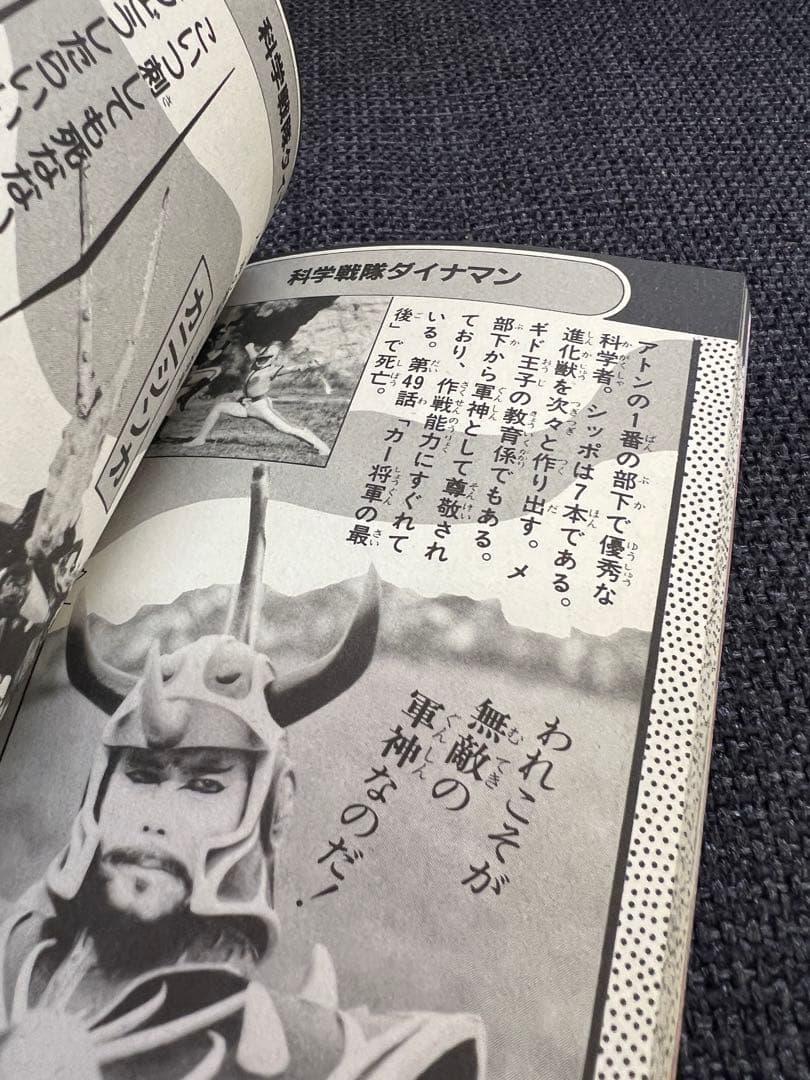 科学戦隊ダイナマン
アトンの1番の部下で優秀な
科学者。シッポは7本である。
進化獣を次々と作り出す。メ
ギド王子の教育係でもある。
部下から軍神として尊敬され
ており、作戦能力にすぐれて
いる。第49話「カー将軍の最
後」で死亡。
われこそが
無敵の
軍神なのだ!
科学戦隊ダイ
こいつ刺
しても死なない
どうしたらいい
カニシンカ